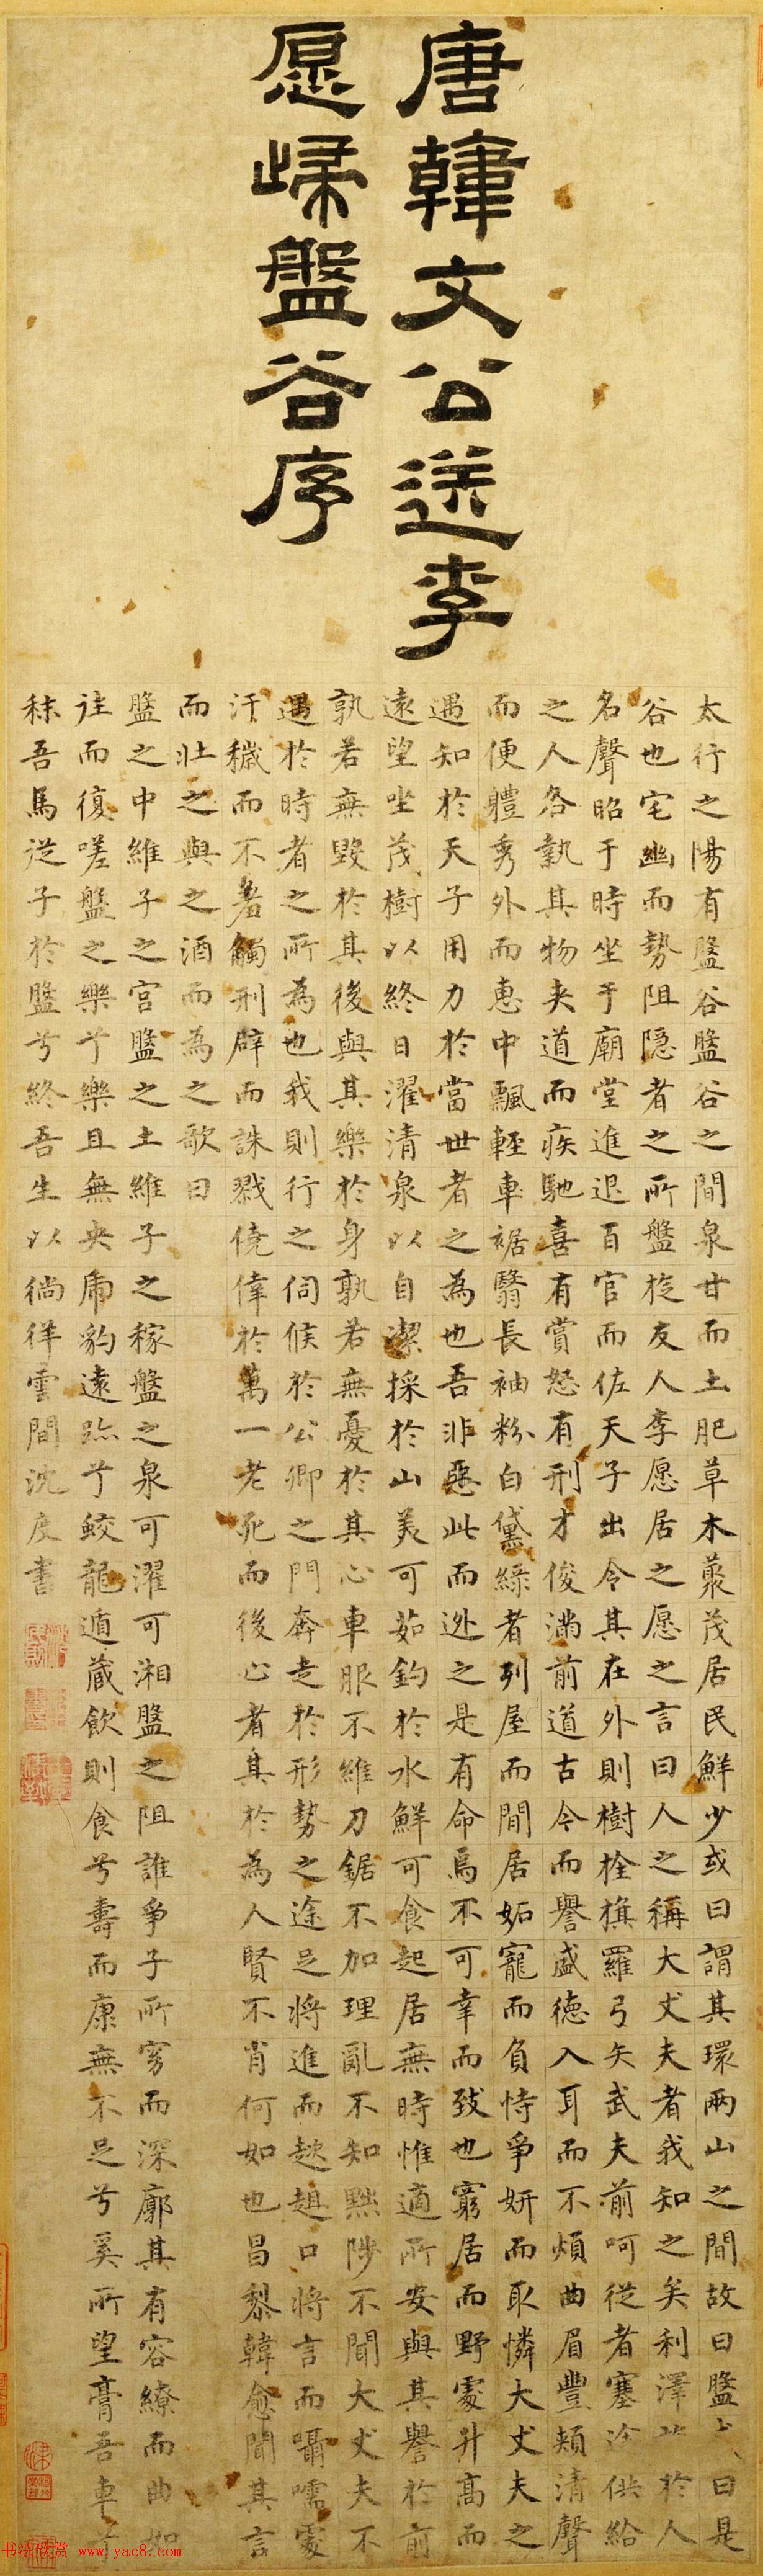 唐韓文公送李
愿歸盤谷序
太行之陽有盤谷盤谷之間泉甘而土肥草木藂茂居民鮮少或曰謂其環兩山之間故曰盤曰是
谷也宅幽而勢阻隱者之所盤旋友人李愿居之愿之言曰人之稱大丈夫者我知之矣利澤於人
名聲昭于時坐于廟堂進退百官而佐天子出令其在外則樹栓旗羅弓矢武夫前呵從者塞途供給
之人各執其物夾道而疾馳喜有賞怒有刑才俊滿前道古今而譽盛德入耳而不煩曲眉豐頰清聲
而便體秀外而惠中飄輕車裾翳長袖粉白黛綠者列屋而間居妬寵而負恃爭妍而取憐大丈夫之
遇知於天子用力於當世者之為也吾非惡此而逃之是有命焉不可幸而致也窮居而野處升高而
遠望坐茂樹以終日濯清泉以自潔採於山美可茹釣於水鮮可食起居無時惟適所安與其譽於前
孰若無毀於其後與其樂於身孰若無憂於其心車服不維刀鋸不加理亂不知黜陟不聞大丈夫不
遇於時者之所為也我則行之伺候於公卿之門奔走於形勢之途足將進而趑趄口將言而囁嚅處
汙穢而不羞觸刑辟而誅戮僥倖於萬一老死而後止者其於為人賢不肖何如也昌黎韓愈聞其言
而壯之與之酒而為之歌曰
盤之中維子之宮盤之土維子之稼盤之泉可濯可湘盤之阻誰爭子所窈而深廓其有容繚而曲如
往而復嗟盤之樂兮樂且無央虎豹遠跡兮蛟龍遁藏飲則食兮壽而康無不足兮奚所望膏吾車兮
秣吾馬從子於盤兮終吾生以徜徉雲間沈度書
书法欣赏 www.yac8.com